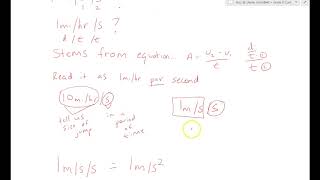 1m/hr/s ?
d / t / t
Stems from equation. A = V₂ - V₁ / t d/t ① / t ②
Read it as 1m/hr per second
10m/hr/s
tell us size of jump
in a period of time
1m/s/s
1m/s/s = 1m/s²